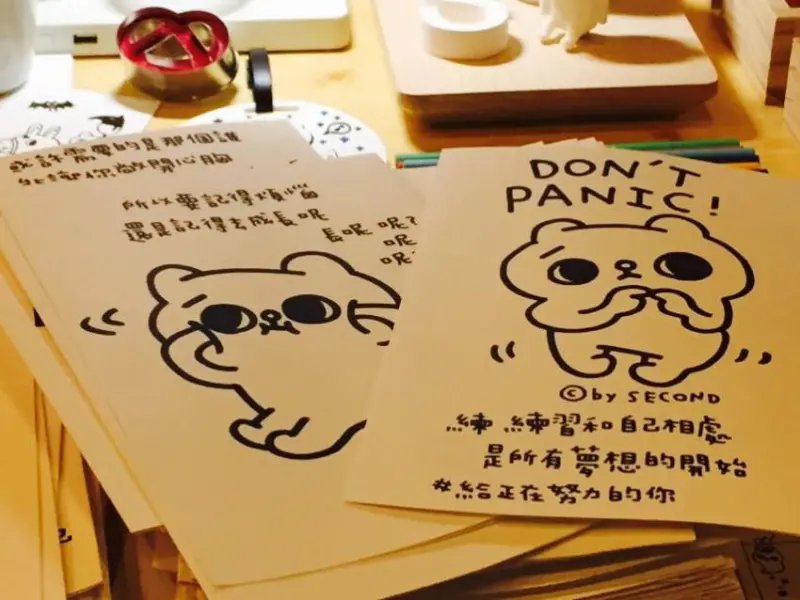 或許需要的是那個誰
讓你敞開心胸
所以要記得煩惱
還是記得去成長呢
長呢 呢?
呢
呢
DON'T
PANIC!
©by SECOND
練 練習和自己相處
是所有夢想的開始
#給正在努力的你